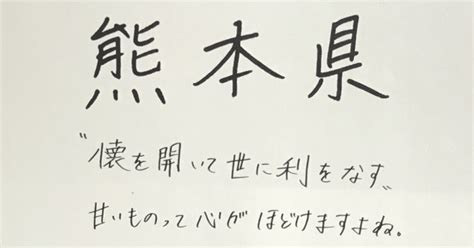 熊本県
〝懐を開いて世に利をなす〟
甘いものって心がほどけますよね。